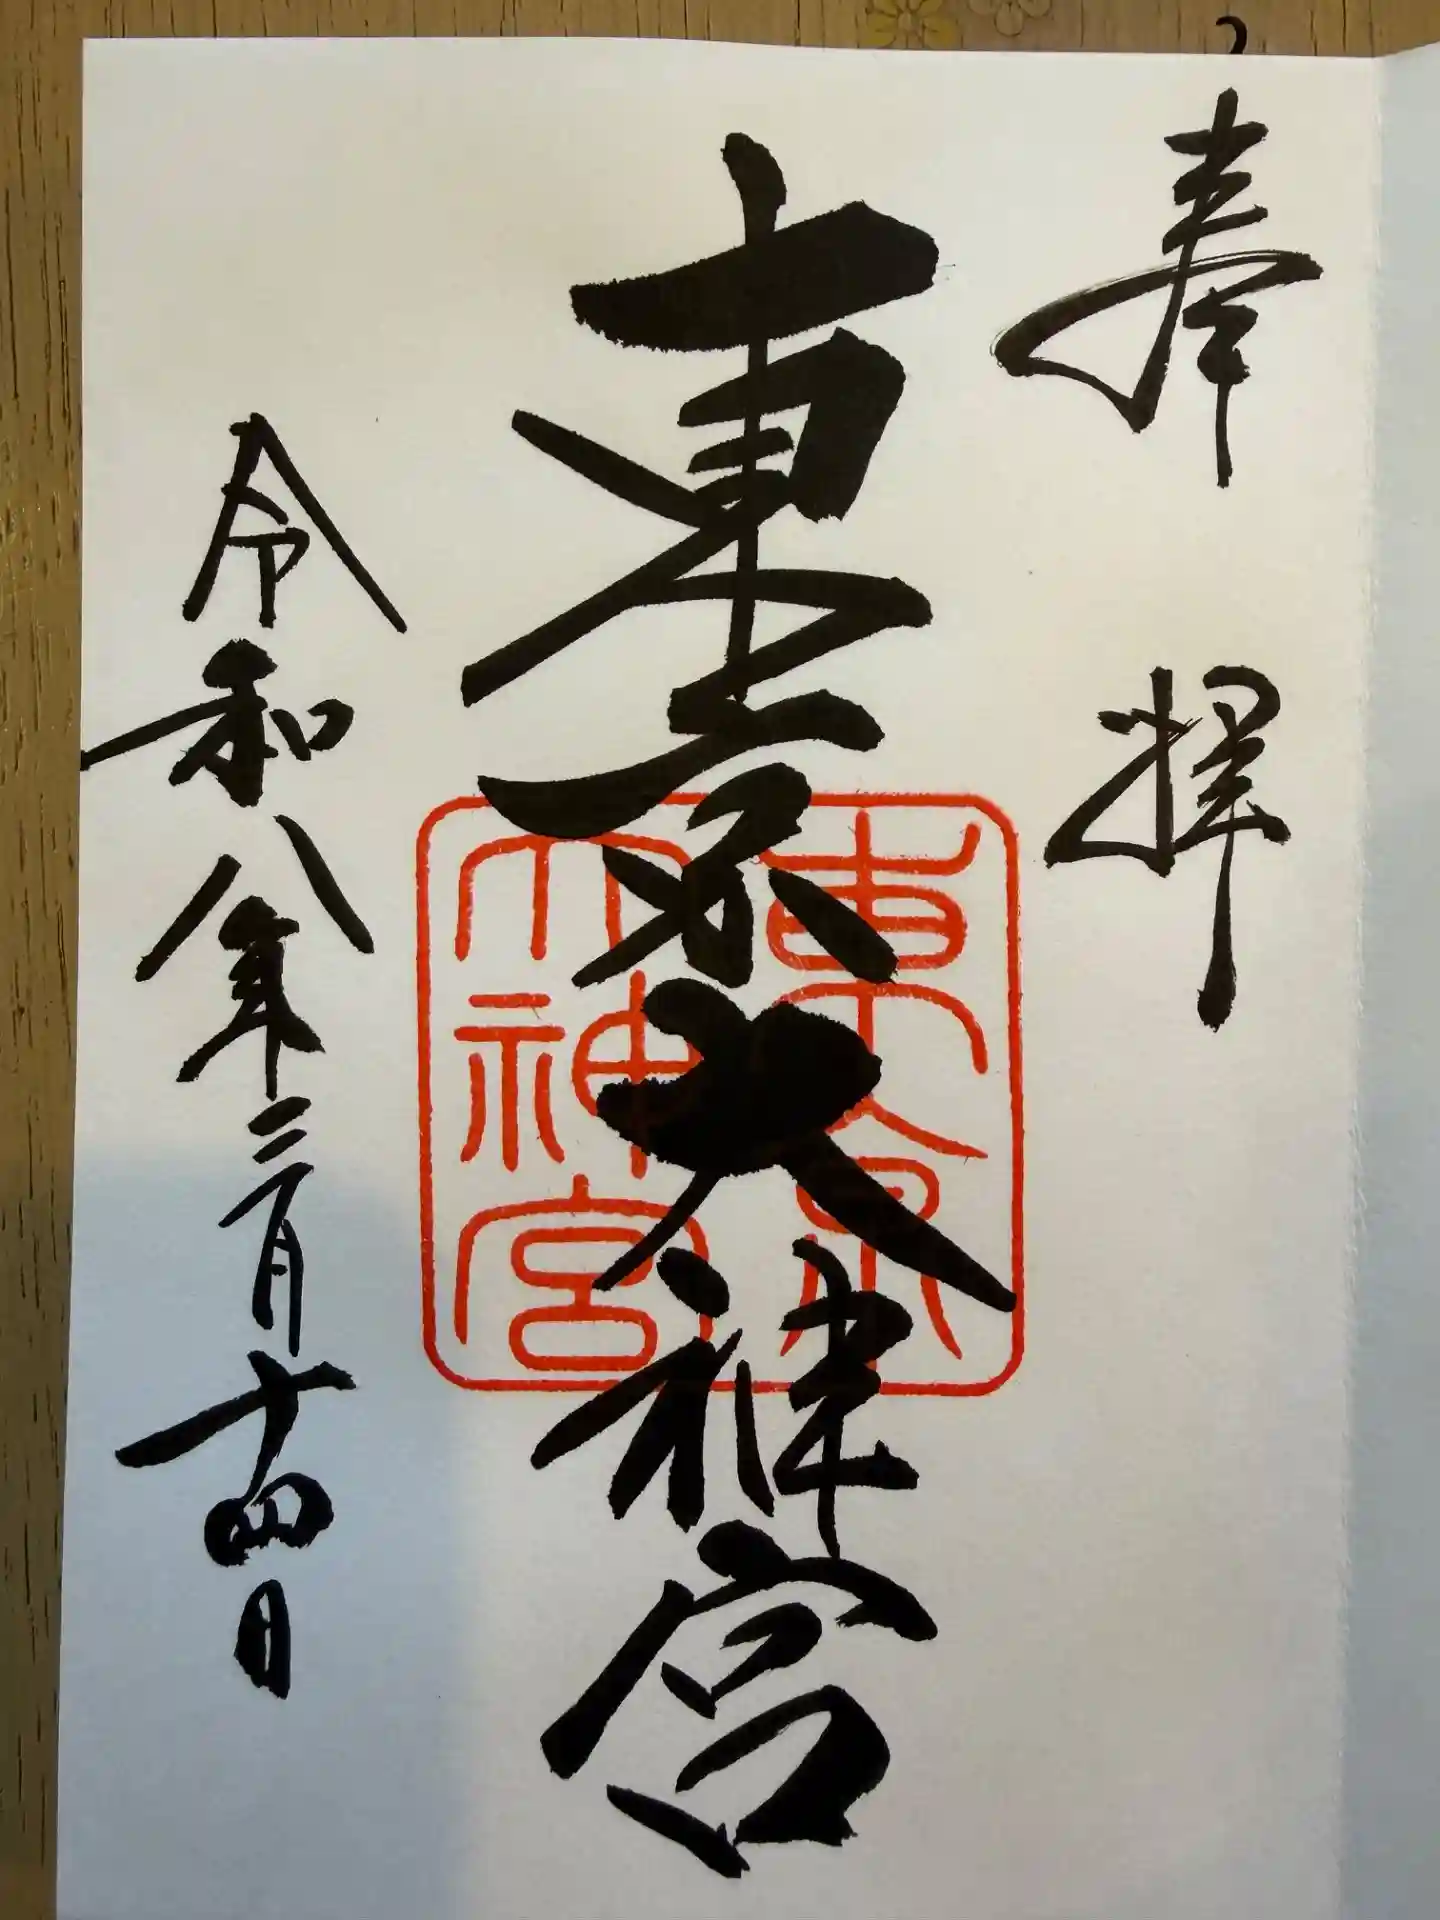 奉拝
東京大神宮
東京
大神宮
令和八年二月十四日